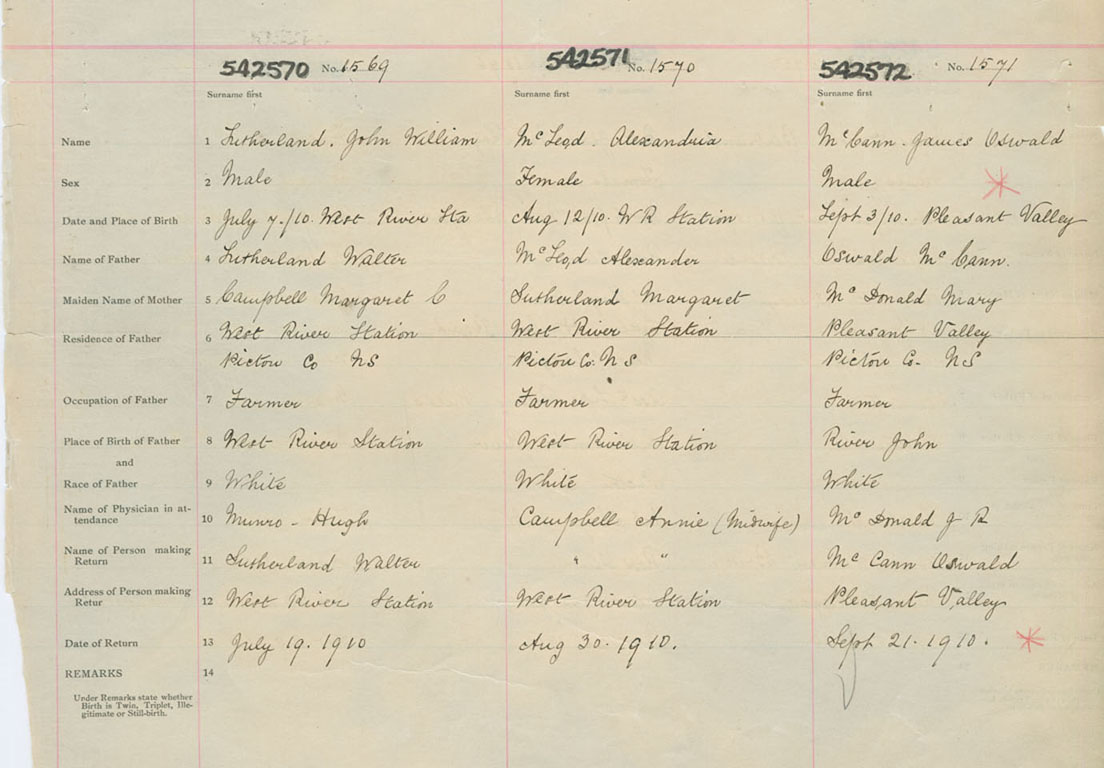 542570 No. 1569 542571 No. 1570 542572 No. 1571
Surname first Surname first Surname first
Name 1 Sutherland. John William McLeod. Alexandria McCann. James Oswald
Sex 2 Male Female Male
Date and Place of Birth 3 July 7-/10. West River Sta Aug 12/10. W R Station Sept 3/10. Pleasant Valley
Name of Father 4 Sutherland Walter McLeod Alexander Oswald McCann.
Maiden Name of Mother 5 Campbell Margaret C Sutherland Margaret McDonald Mary
Residence of Father 6 West River Station West River Station Pleasant Valley
Pictou Co NS Pictou Co. NS Pictou Co- NS
Occupation of Father 7 Farmer Farmer Farmer
Place of Birth of Father 8 West River Station West River Station River John
and
Race of Father 9 White White White
Name of Physician in at-
tendance 10 Munro - Hugh Campbell Annie (Midwife) McDonald J R
Name of Person making
Return 11 Sutherland Walter " " McCann Oswald
Address of Person making
Retur 12 West River Station West River Station Pleasant Valley
Date of Return 13 July 19. 1910 Aug 30-1910. Sept 21-1910.
REMARKS 14
Under Remarks state whether
Birth is Twin, Triplet, Ille-
gitimate or Still-birth.